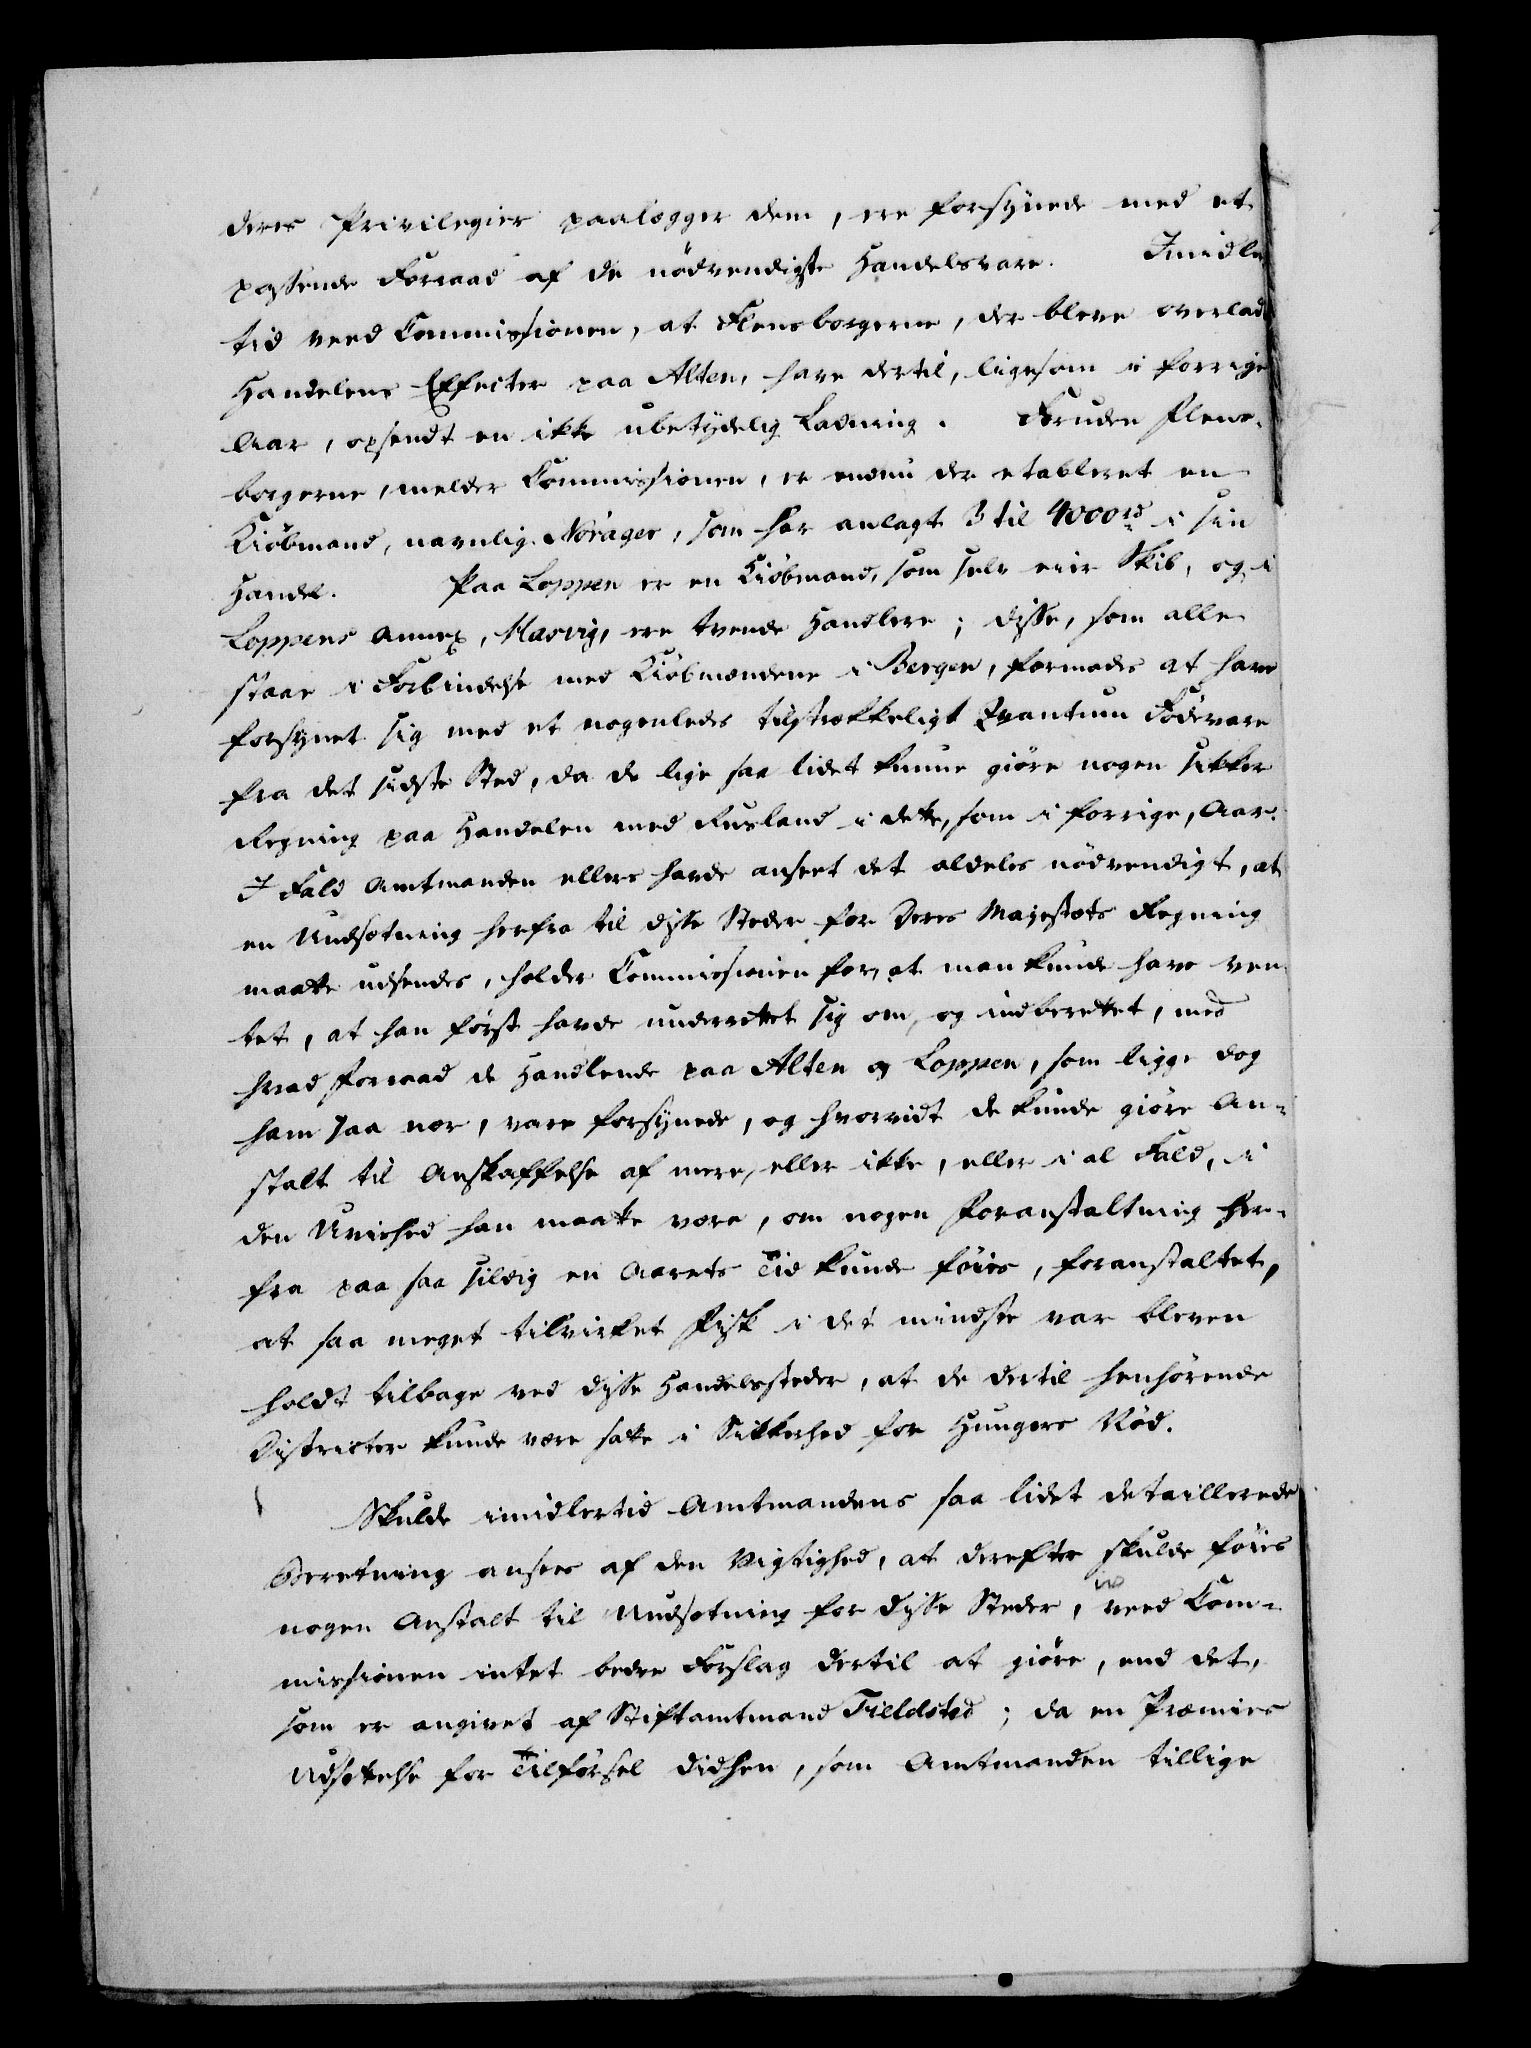 deres Privilegier paalægger dem, ere forsynede med et
passende Forraad af de nödvendigste Handelsvare. Imidler
tid veed Commissionen, at Flensborgerne, der bleve overladt
Handelens Effecter paa Alten, have dertil, ligesom i forrige
Aar, opsendt en ikke ubetydelig Ladning. Foruden Flens-
borgerne, melder Commissionen, er endnu der etableret en
Kiöbmand, navnlig Norager, som har anlagt 3 til 4000 rd i sin
Handel. Paa Loppen er en Kiöbmand, som selv eier Skib, og i
Loppens Annex, Hasvig, ere tvende Handlere; disse, som alle
staae i Forbindelse med Kiöbmændene i Bergen, formodes at have
forsynet sig med et nogenledes tilstrækkeligt Qvantum Födevare
fra det sidste Sted, da de lige saa lidet kunne giöre nogen sikker
Regning paa Handelen med Rusland i dette, som i forrige, Aar.
I Fald Amtmanden ellers havde anseet det aldeles nödvendigt, at
en Undsætning herfra til disse Steder for Deres Majestæts Regning
maatte udsendes, holder Commissionen for, at man kunde have ven-
tet, at han först havde underrettet sig om, og indberettet, med
hvad Forraad de Handlende paa Alten og Loppen, som ligge dog
ham saa nær, vare forsynede, og hvorvidt de kunde giöre An-
stalt til Anskaffelse af mere, eller ikke, eller i al Fald, i
den Uvished han maatte være, om nogen Foranstaltning her-
fra paa saa sildig en Aarets Tid kunde föies, foranstaltet,
at saa meget tilvirket Fisk i det mindste var bleven
holdt tilbage ved disse Handelssteder, at de dertil henhörende
Districter kunde være satte i Sikkerhed for Hungers Nöd.
Skulde imidlertid Amtmandens saa lidet detaillerede
Beretning ansees af den Vigtighed, at derefter skulde föies
nogen Anstalt til Undsætning for disse Steder, veed Com-
missionen intet bedre Forslag dertil at giöre, end det,
som er angivet af Stiftamtmand Fieldsted; da en Præmies
Udsættelse for Tilförsel didhen, som Amtmanden tillige